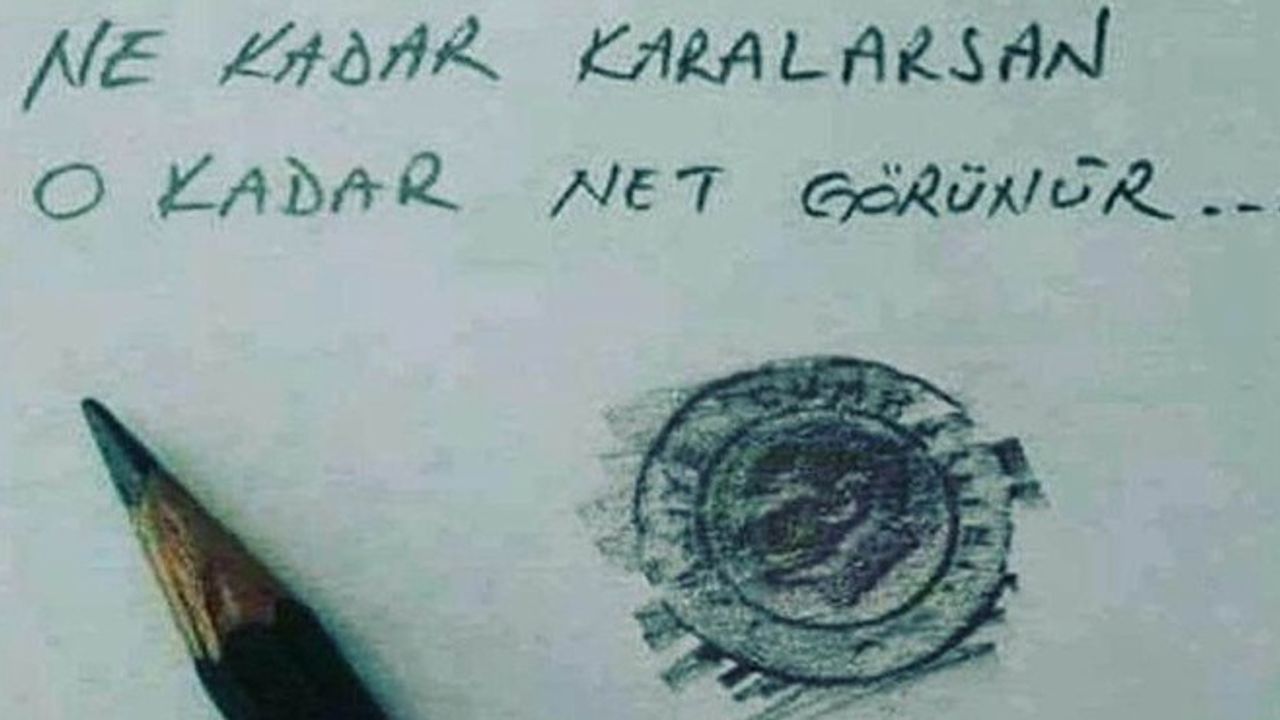 NE KADAR KARALARSAN
O KADAR NET GÖRÜNÜR...